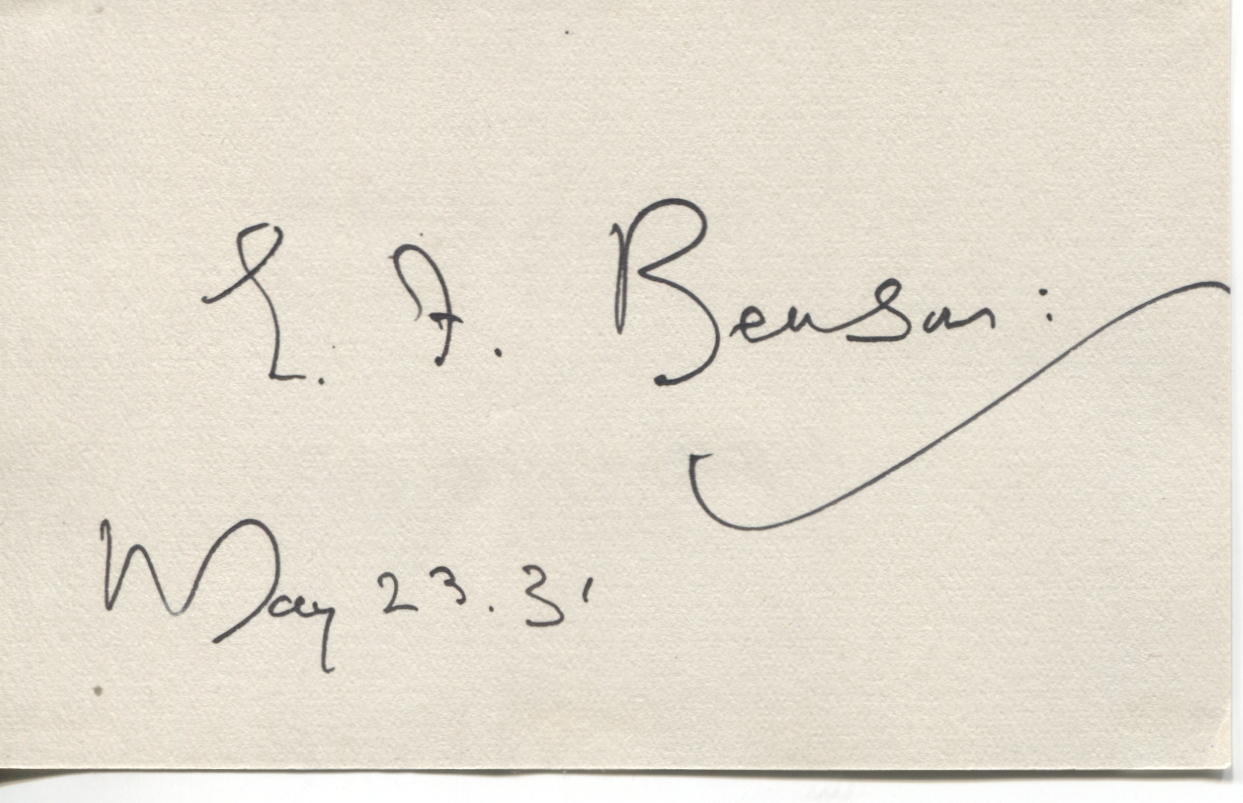 E. F. Benson:
May 23. 31